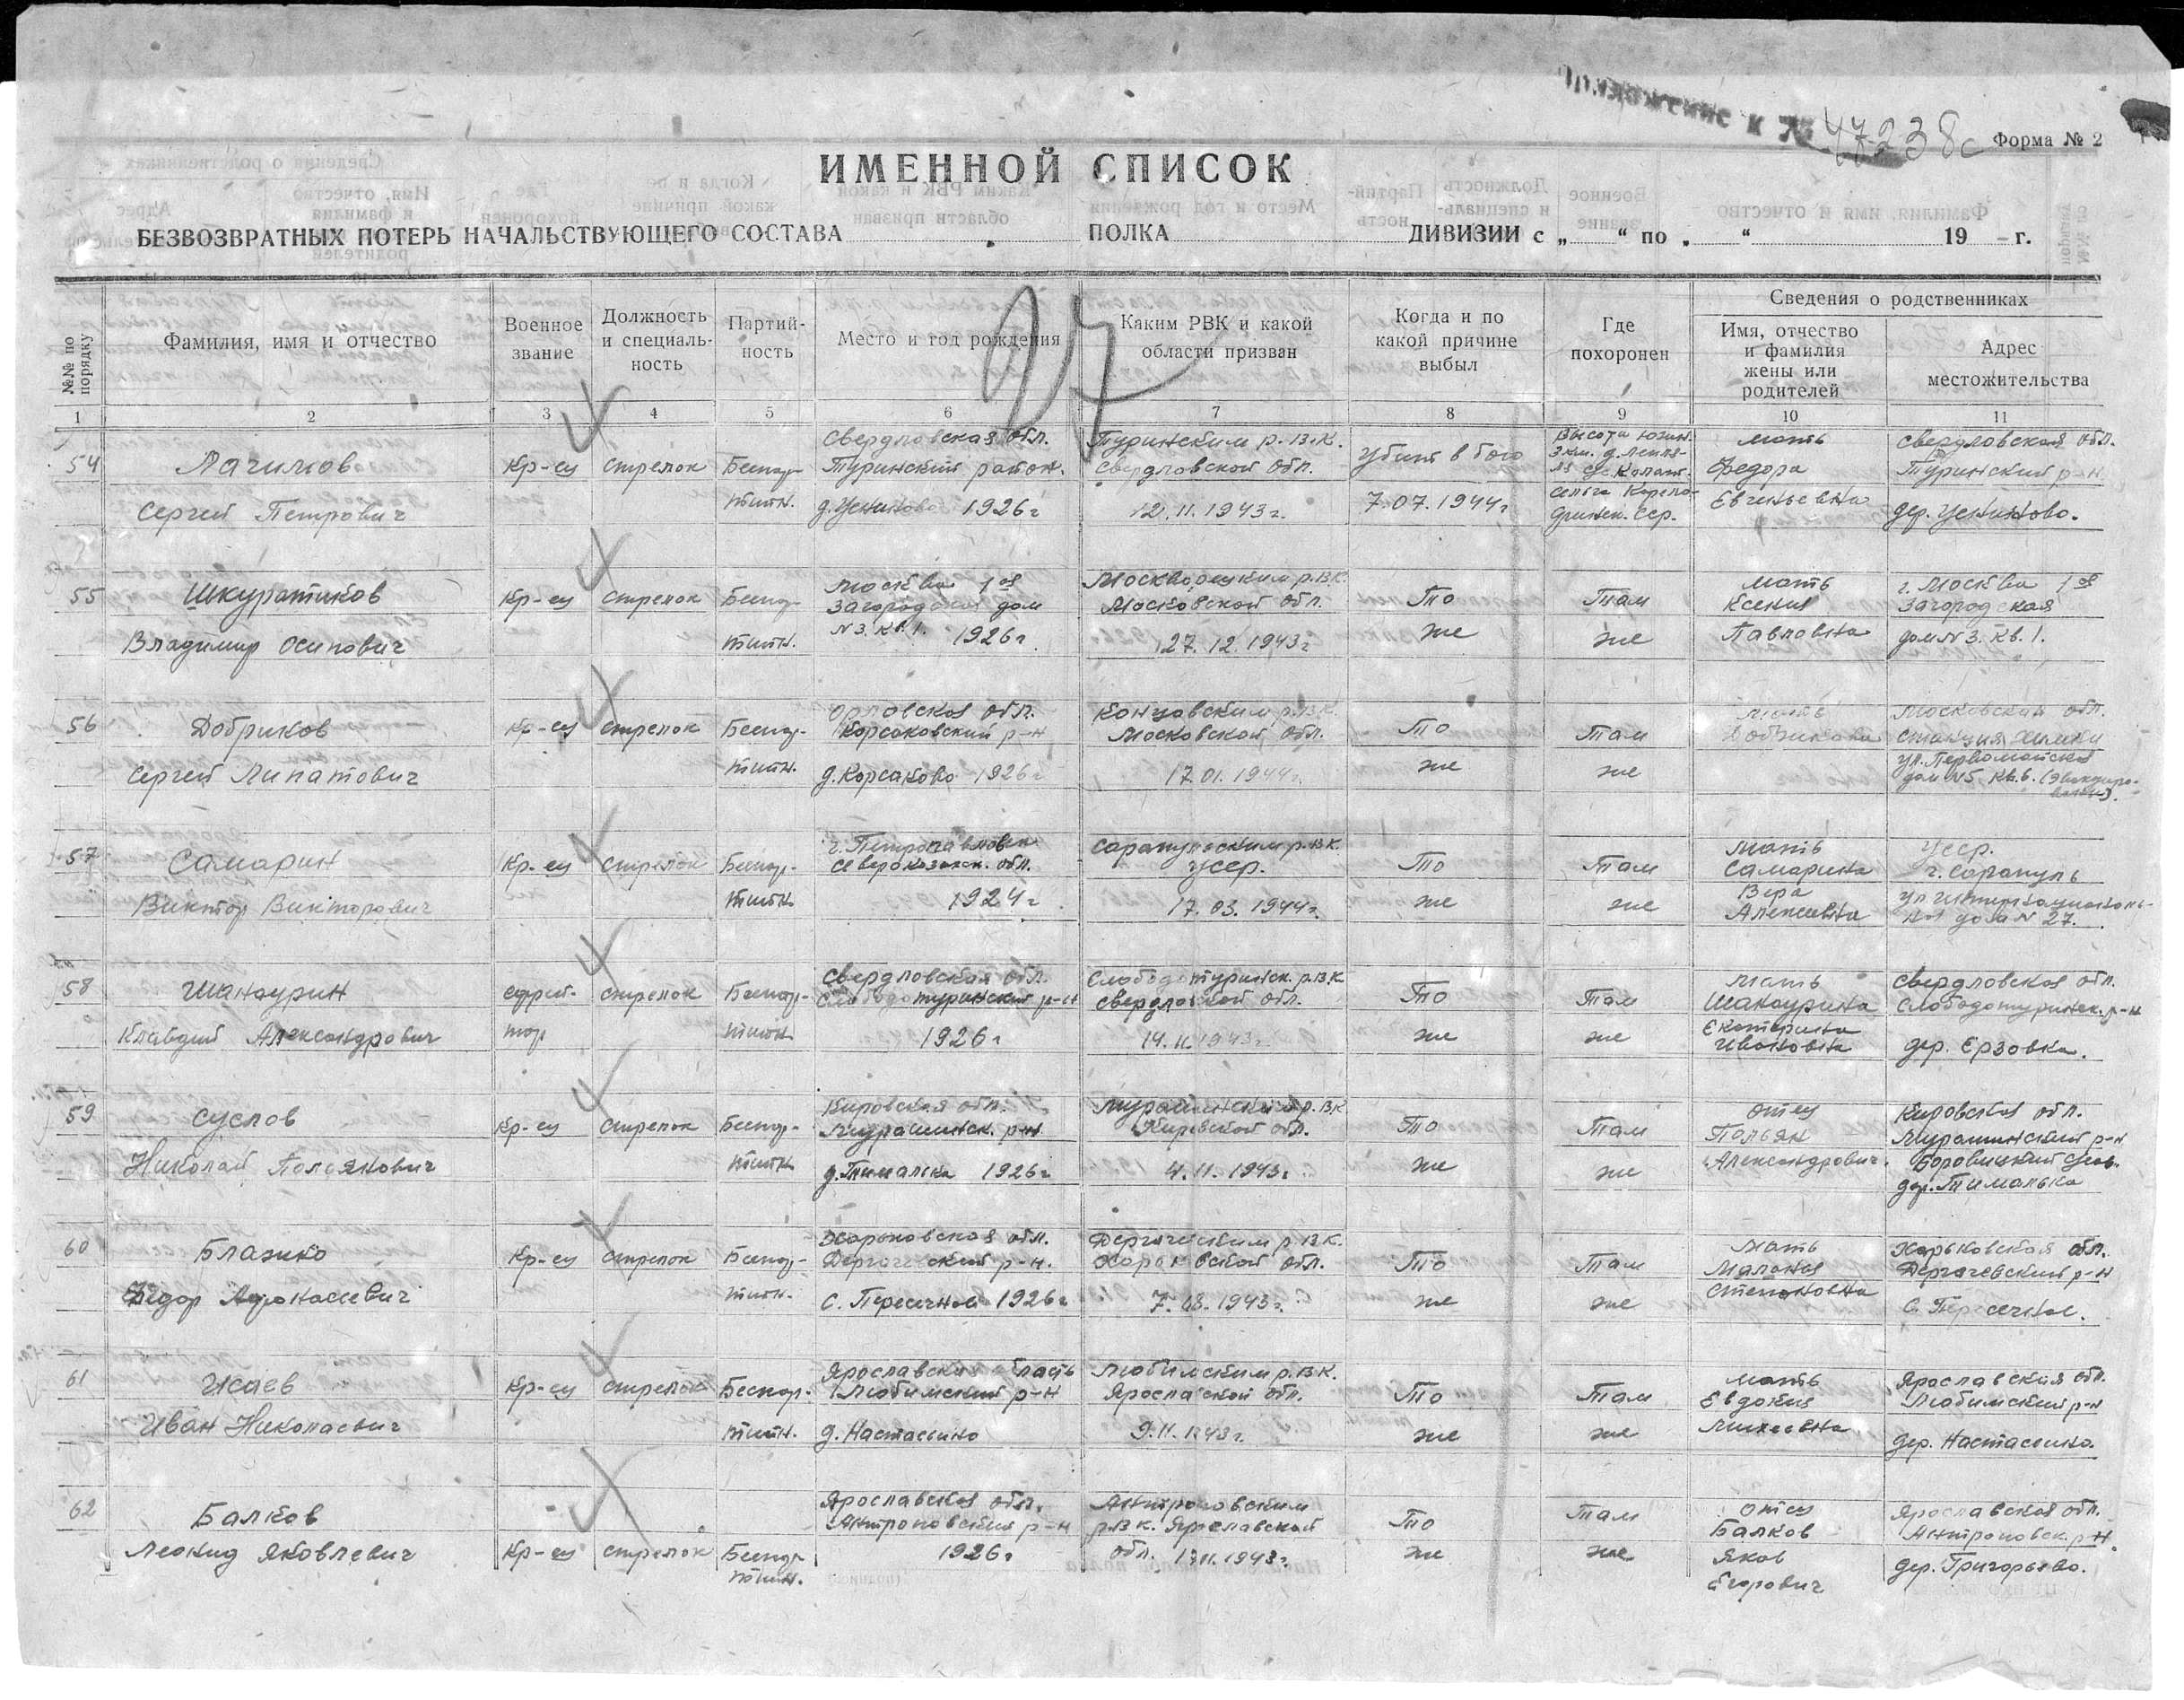 Приложение к № 47238с
Форма № 2
ИМЕННОЙ СПИСОК
БЕЗВОЗВРАТНЫХ ПОТЕРЬ НАЧАЛЬСТВУЮЩЕГО СОСТАВА ПОЛКА ДИВИЗИИ с „ “ по „ “ 19 – г.
№№ по порядку
Фамилия, имя и отчество
Военное звание
Должность и специальность
Партийность
Место и год рождения
Каким РВК и какой области призван
Когда и по какой причине выбыл
Где похоронен
Сведения о родственниках
Имя, отчество и фамилия жены или родителей
Адрес местожительства
1 2 3 4 5 6 7 8 9 10 11
54 Сергей Петрович
Кр-ец стрелок Беспартийн.
Свердловская обл. Туринский район. 1926 г
Туринским р.В.К. Свердловской обл. 12.11.1943 г.
Убит в бою 7.07.1944 г
Высота южн. 3 км.
мать Федора Евгеньевна
Свердловская обл. Туринский р-н
55 Шкуратиков Владимир Осипович
Кр-ец стрелок Беспартийн.
Москва 1ая Загородская дом N 3. кв. 1. 1926 г
Москворецким р.В.К. Московской обл. 27.12.1943 г
То же
Там же
мать Ксения Павловна
г. Москва 1ая Загородская дом N 3. кв. 1.
56 Добриков Сергей Липатович
Кр-ец стрелок Беспартийн.
Орловская обл. Корсаковский р-н д. Корсаково 1926 г
р.В.К. Московской обл. 17.01.1944 г.
То же
Там же
мать
Московская обл. станция Химки ул. Первомайская дом N 5, кв. 6.
57 Самарин Виктор Викторович
Кр-ец стрелок Беспартийн
г. Петропавловск Северо казахск. обл. 1924 г
Сарапульским р.В.К. УССР. 17.03.1944 г.
То же
Там же
мать Самарина Вера Алексеевна
г. Сарапуль N 27.
58 Шанаурин Клавдий Александрович
ефрейтор стрелок Беспартийн
Свердловская обл. Слободотуринский р-н 1926 г
Слободотуринск. р.В.К. Свердловской обл. 14.11.1943 г
То же
Там же
мать Шанаурина Екатерина Ивановна
Свердловская обл. Слободотуринск. р-н дер. Ерзовка.
59 Суслов Николай Пользянович
Кр-ец стрелок Беспартийн
Кировская обл. Мурашинск. р-н 1926 г
Мурашинский р.В.К. Кировской обл. 4.11.1943 г
То же
Там же
отец Александрович.
Кировская обл. Мурашинский р-н дер. Тиманька
60 Блажко Федор Афанасьевич
Кр-ец стрелок Беспартийн.
Харьковская обл. Дергачевский р-н. С. Пересечное 1926 г
Дергачевским р.В.К. Харьковской обл. 7. 1943 г.
То же
Там же
мать Маланья Степановна
Харьковская обл. Дергачевский р-н С. Пересечное.
61 Исаев Иван Николаевич
Кр-ец стрелок Беспартийн.
Ярославская область Любимский р-н д. Настасьино
Любимским р.В.К. Ярославской обл. 9.11.1943 г.
То же
Там же
мать Евдокия Михеевна
Ярославская обл. Любимский р-н дер. Настасьино.
62 Балков Леонид Яковлевич
Кр-ец стрелок Беспартийн.
Ярославская обл. Антроповский р-н 1926 г
Антроповским р.В.К. Ярославской обл. 1943 г.
То же
Там же
отец Балков Яков Егорович
Ярославская обл. Антроповск. р-н. дер. Григорьево.